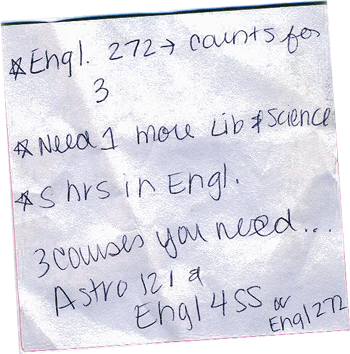 ☆Engl. 272→ counts for
3
☆Need 1 more Lib & Science
☆5 hrs in Engl.
3 courses you need...
Astro 121 &
Engl 455 or
Engl 272